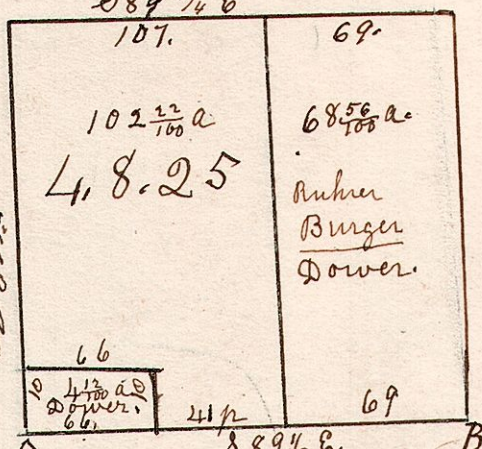 S 89 1/4 E
107.
69.
102 22/100 a
68 56/100 a.
4.8.25
Ruhrer
Burger
Dower.
66
10 4 12/100 a 10
Dower.
66.
41 p
69
S 89 1/4 E.
B